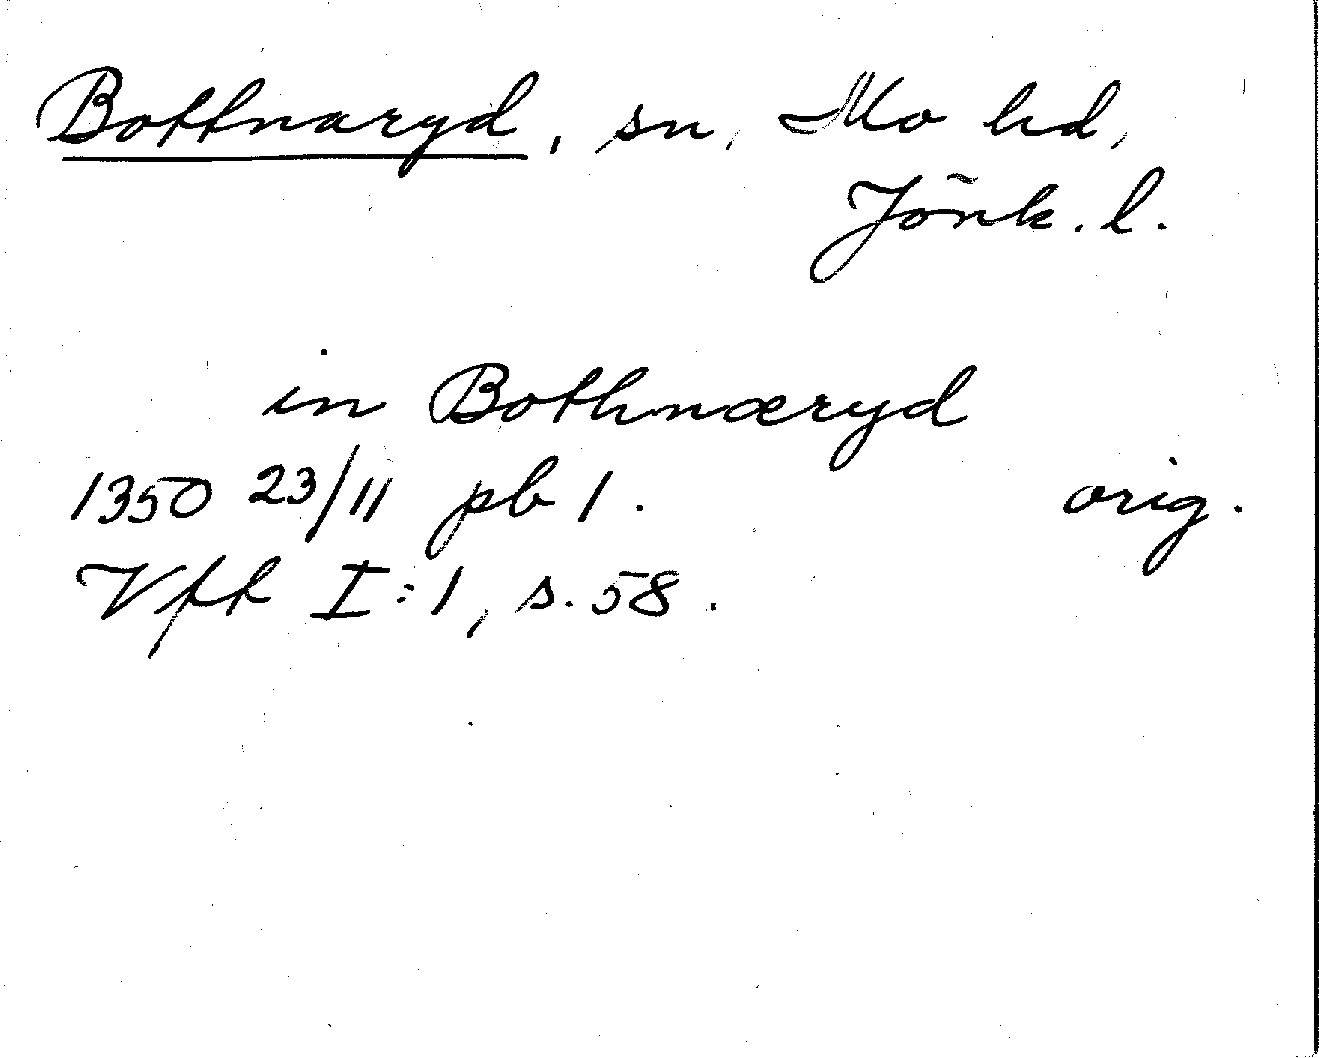 Bottnaryd, sn, Mo hd,
Jönk. l.
in Bothnæryd
1350 23/11 pb 1. orig.
Vfr I:1, s. 58.